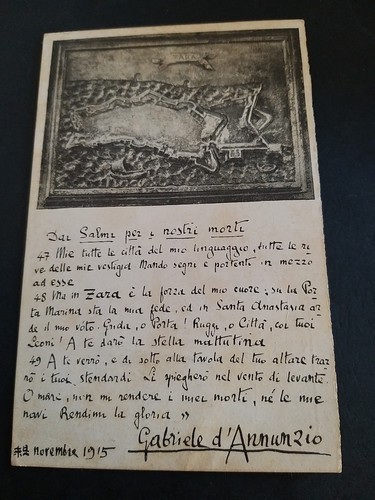 ZARA
Dai Salmi per i nostri morti
47 Mie tutte le città del mio linguaggio, tutte le ri
ve delle mie vestigia Mando segni e portenti in mezzo
ad esse
48 Ma in Zara è la forza del mio cuore; su la Por
ta Marina sta la mia fede, ed in Santa Anastasia ar
de il mio voto. Grida, o Porta! Ruggi, o Città, coi tuoi
Leoni! A te darò la stella mattutina
49 A te verrò, e di sotto alla tavola del tuo altare trar
rò i tuoi stendardi Li spiegherò nel vento di levante.
O mare, non mi rendere i miei morti, né le mie
navi Rendimi la gloria »
Gabriele d'Annunzio
novembre 1915